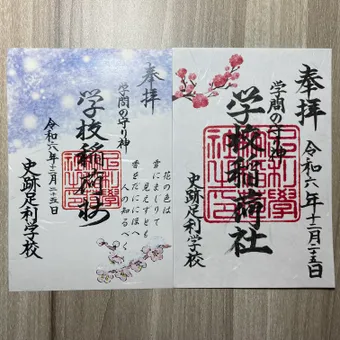 奉拝
学問の守り神
学校稲荷社
令和六年十二月二十五日
史跡足利学校
花の色は
雪にまじりて
見えずとも
香をだににほへ
人の知るべく
奉拝
学問の守り神
学校稲荷社
令和六年十二月二十五日
史跡足利学校